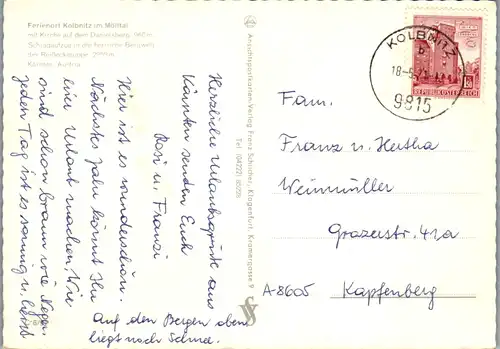 Ferienort Kolbnitz im Mölltal
mit Kirche auf dem Danielsberg, 966 m
Schrägaufzug in die herrliche Bergwelt
des Reißeckmassivs
Kärnten, Austria
Herzliche Urlaubsgrüße aus
Kärnten senden Euch
Rosi u. Franzi
Hier ist es wunderschön.
Nächstes Jahr könnt Ihr
hier Urlaub machen, Wir
sind schon braun wie Neger.
Jeden Tag ist es sonnig u.
Auf den Bergen oben
liegt noch Schnee.
Ansichtspostkarten-Verlag Franz Schilcher, Klagenfurt, Kramergasse 9
Tel. (04222)
KOLBNITZ
b
18.-5.
9815
REPUBLIK ÖSTERREICH
Fam.
Franz u. Hertha
Weinmüller
Grazerstr. 41a
A-8605 Kapfenberg